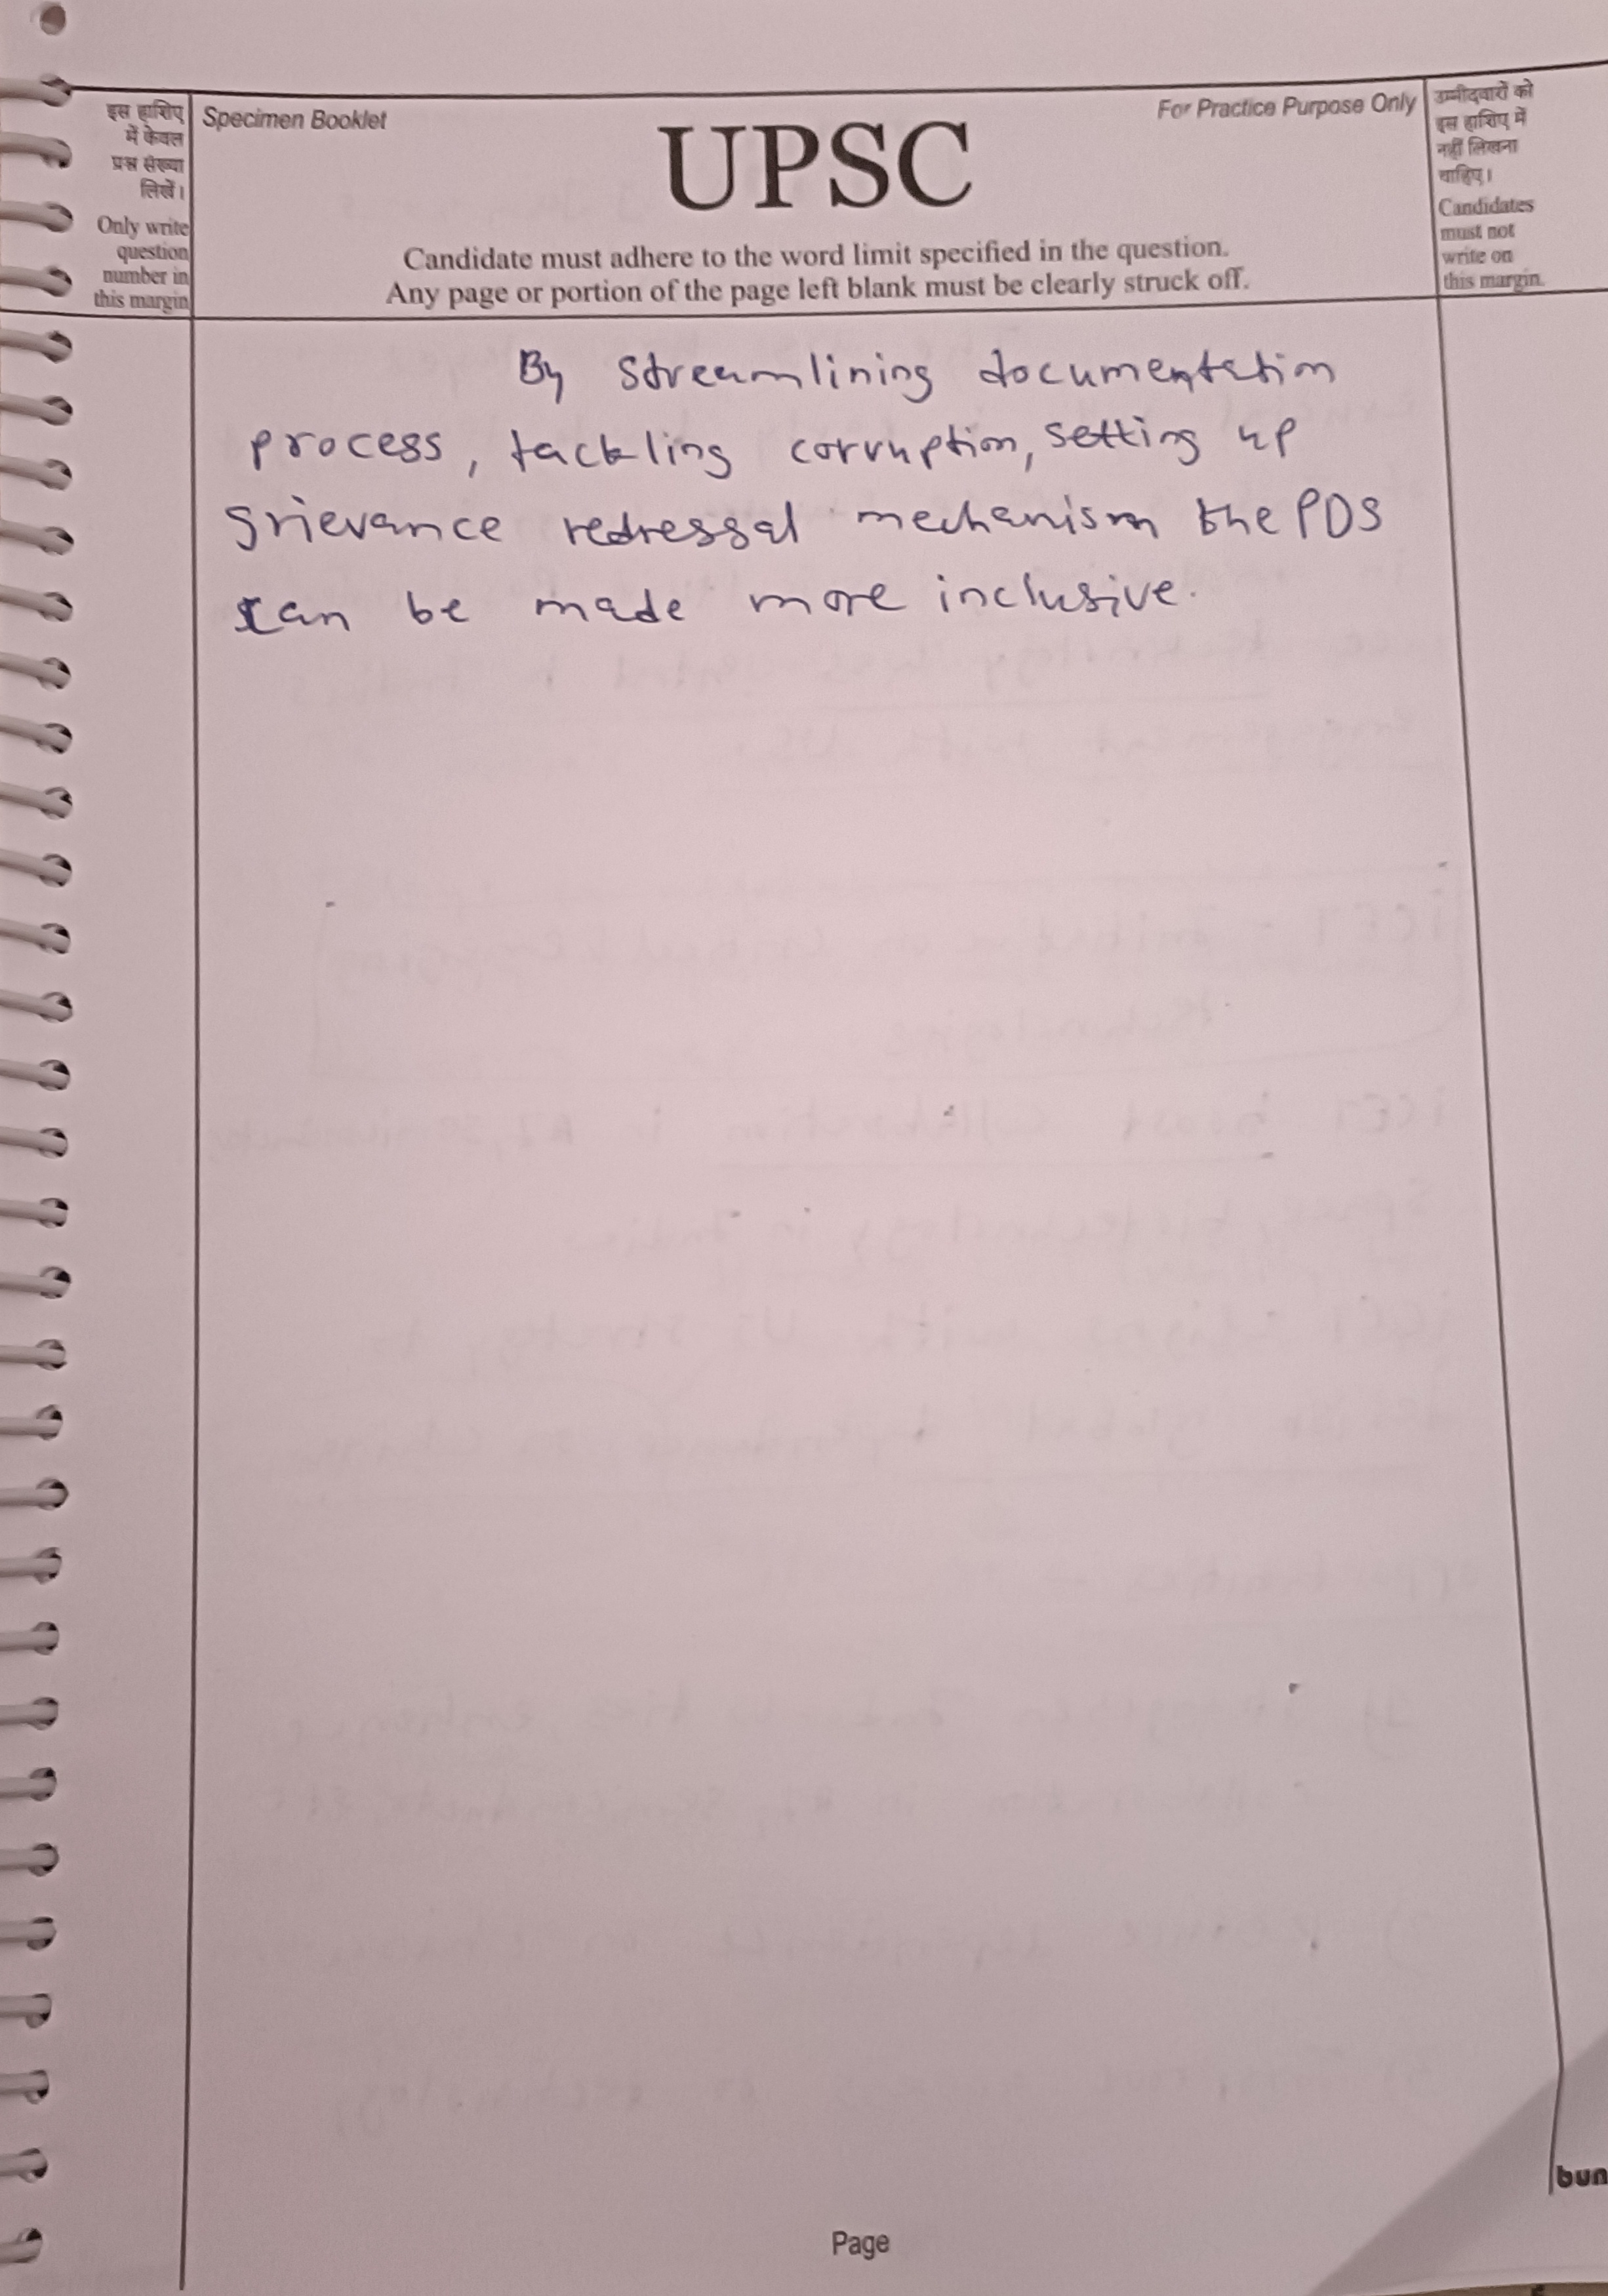 इस हाशिए
में केवल
प्रश्न संख्या
लिखें।
Only write
question
number in
this margin
Specimen Booklet
For Practice Purpose Only
UPSC
Candidate must adhere to the word limit specified in the question.
Any page or portion of the page left blank must be clearly struck off.
उम्मीदवारों को
इस हाशिए में
नहीं लिखना
चाहिए।
Candidates
must not
write on
this margin.
By streamlining documentation
process, tackling corruption, setting up
grievance redressal mechanism the PDS
can be made more inclusive.
bun
Page